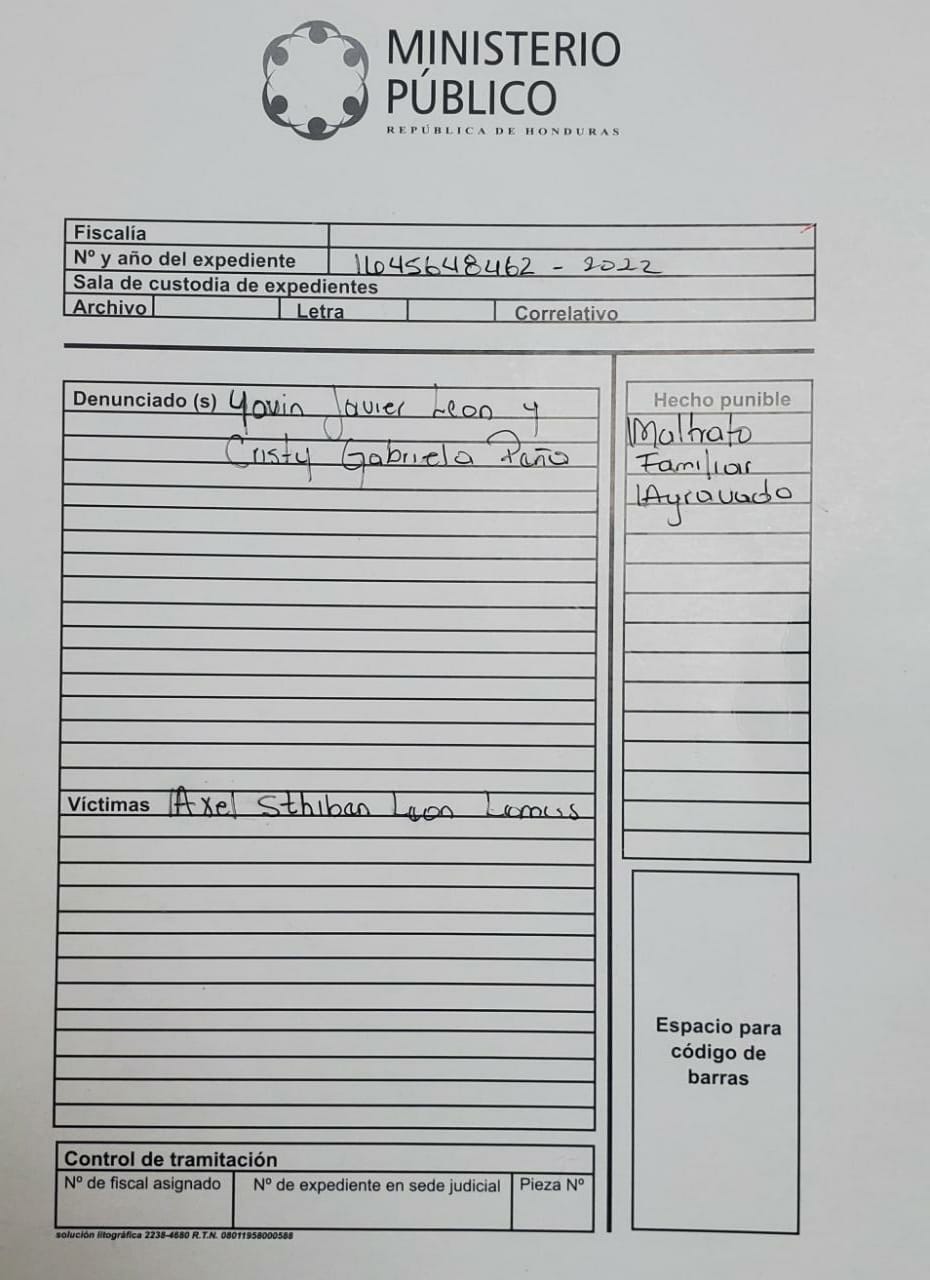 MINISTERIO
PÚBLICO
REPÚBLICA DE HONDURAS
Fiscalía
Nº y año del expediente 11045648462 - 2022
Sala de custodia de expedientes
Archivo Letra Correlativo
Denunciado (s) Yovin Javier Leon y
Cristy Gabriela
Hecho punible
Maltrato
Familiar
Agravado
Víctimas Axel Sthiban Leon
Espacio para
código de
barras
Control de tramitación
Nº de fiscal asignado Nº de expediente en sede judicial Pieza Nº
solución litográfica 2238-4680 R.T.N. 08011958000588